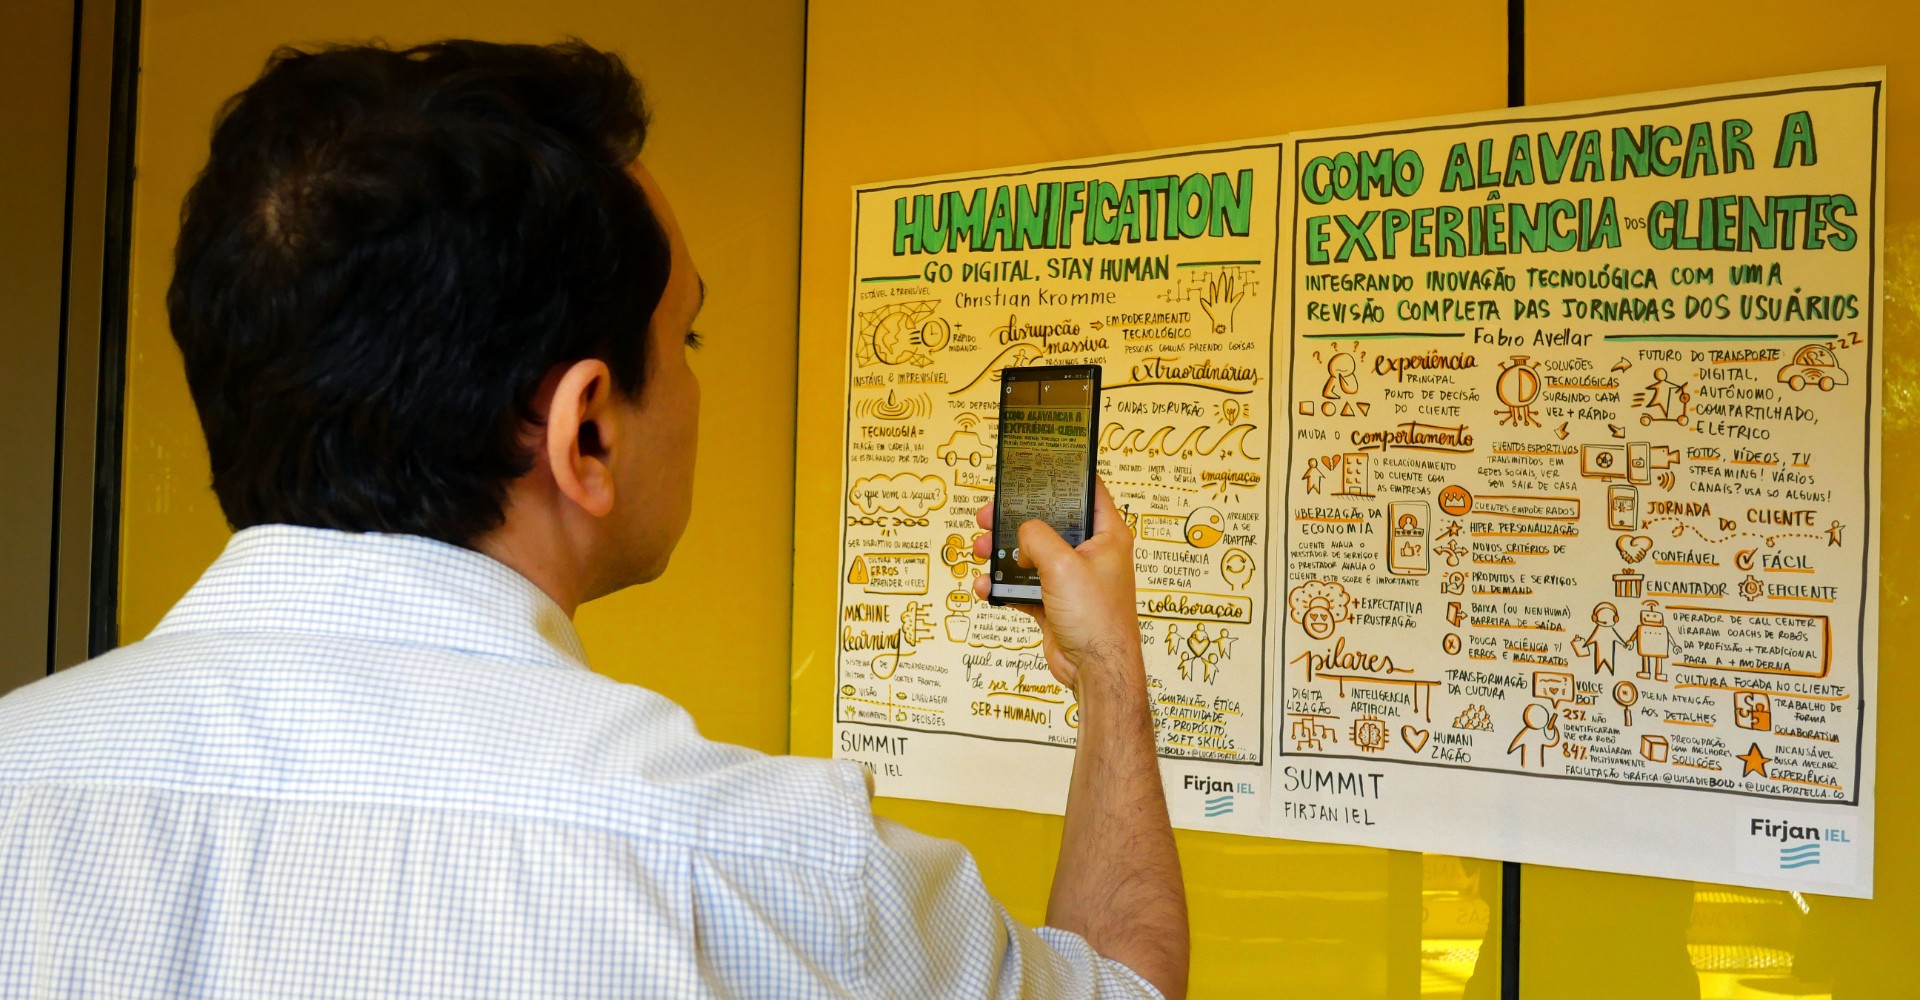 HUMANIFICATION
GO DIGITAL, STAY HUMAN
Christian Kromme
ESTÁVEL & PREVISÍVEL
+ RÁPIDO
MUDANDO...
INSTÁVEL & IMPREVISÍVEL
disrupção
massiva
PRÓXIMOS 5 ANOS
EMPODERAMENTO
TECNOLÓGICO
PESSOAS COMUNS FAZENDO COISAS
extraordinárias
TUDO DEPENDE
TECNOLOGIA =
REAÇÃO EM CADEIA, VAI
SE ESPALHANDO POR TUDO
99%
7 ONDAS DISRUPÇÃO
imaginação
I.A.
o que vem a seguir?
NOSSO CORPO
TRILHÕES
SER DISRUPTIVO OU MORRER!
CULTURA DE COMETER
ERROS E
APRENDER C/ ELES
EQUILÍBRIO &
ÉTICA
APRENDER
A SE
ADAPTAR
CO-INTELIGÊNCIA
FLUXO COLETIVO =
SINERGIA
colaboração
MACHINE
learning
SISTEMA DE AUTOAPRENDIZADO
IMITAM O CORTEX FRONTAL
VISÃO
LINGUAGEM
MOVIMENTO
DECISÕES
qual a import
de ser humano?
SER + HUMANO!
COMPAIXÃO, ÉTICA,
CRIATIVIDADE,
PROPÓSITO,
SOFT SKILLS...
@LUCASPORTELLA.CO
SUMMIT
IEL
Firjan IEL
COMO ALAVANCAR A
EXPERIÊNCIA DOS CLIENTES
INTEGRANDO INOVAÇÃO TECNOLÓGICA COM UMA
REVISÃO COMPLETA DAS JORNADAS DOS USUÁRIOS
Fabio Avellar
experiência
PRINCIPAL
PONTO DE DECISÃO
DO CLIENTE
SOLUÇÕES
TECNOLÓGICAS
SURGINDO CADA
VEZ + RÁPIDO
FUTURO DO TRANSPORTE:
- DIGITAL,
- AUTÔNOMO,
- COMPARTILHADO,
ELÉTRICO
ZZZ
MUDA O comportamento
O RELACIONAMENTO
DO CLIENTE COM
AS EMPRESAS
EVENTOS ESPORTIVOS
TRANSMITIDOS EM
REDES SOCIAIS, VER
SEM SAIR DE CASA
FOTOS, VÍDEOS, TV
STREAMING! VÁRIOS
CANAIS? USA SÓ ALGUNS!
UBERIZAÇÃO DA
ECONOMIA
CLIENTE AVALIA O
PRESTADOR DE SERVIÇO E
O PRESTADOR AVALIA O
CLIENTE, ESTE SCORE É IMPORTANTE
CLIENTES EMPODERADOS
HIPER PERSONALIZAÇÃO
NOVOS CRITÉRIOS DE
DECISÃO
PRODUTOS E SERVIÇOS
ON DEMAND
BAIXA (OU NENHUMA)
BARREIRA DE SAÍDA
POUCA PACIÊNCIA P/
ERROS E MAUS TRATOS
JORNADA
DO CLIENTE
CONFIÁVEL
FÁCIL
ENCANTADOR
EFICIENTE
+ EXPECTATIVA
+ FRUSTRAÇÃO
OPERADOR DE CALL CENTER
VIRARAM COACHS DE ROBÔS
DA PROFISSÃO + TRADICIONAL
PARA A + MODERNA
pilares
DIGITA
LIZAÇÃO
INTELIGENCIA
ARTIFICIAL
HUMANI
ZAÇÃO
TRANSFORMAÇÃO
DA CULTURA
VOICE
BOT
25% NÃO
IDENTIFICARAM
QUE ERA ROBÔ
84% AVALIARAM
POSITIVAMENTE
CULTURA FOCADA NO CLIENTE
PLENA ATENÇÃO
AOS DETALHES
TRABALHO DE
FORMA
COLABORATIVA
PREOCUPAÇÃO
COM MELHORES
SOLUÇÕES
INCANSÁVEL
BUSCA MELHOR
EXPERIÊNCIA
FACILITAÇÃO GRÁFICA: @LUISADIEBOLD + @LUCASPORTELLA.CO
SUMMIT
FIRJAN IEL
Firjan IEL